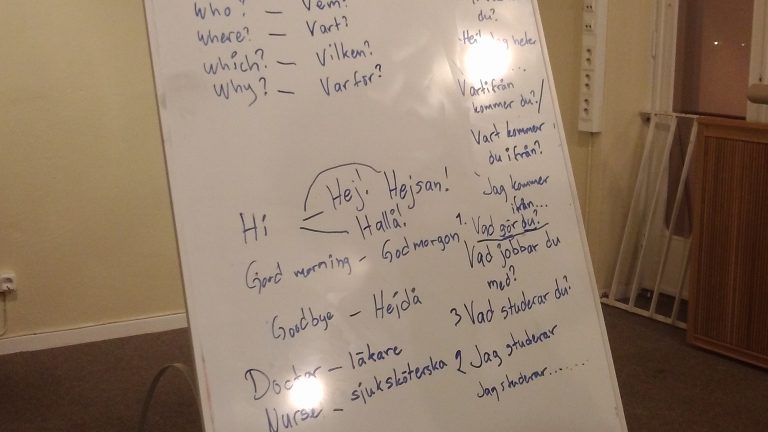 Who? - Vem?
Where? - Vart?
Which? - Vilken?
Why? - Varför?
Hi - Hej! Hejsan!
Hallå!
Good morning - Godmorgon
Goodbye - Hejdå
Doctor - läkare
Nurse - sjuksköterska
du?
Hej! Jag heter
.....
Vartifrån
kommer du?/
Vart kommer
du ifrån?
Jag kommer
ifrån...
1. Vad gör du?
Vad jobbar du
med?
3 Vad studerar du?
2 Jag studerar
Jag studerar........